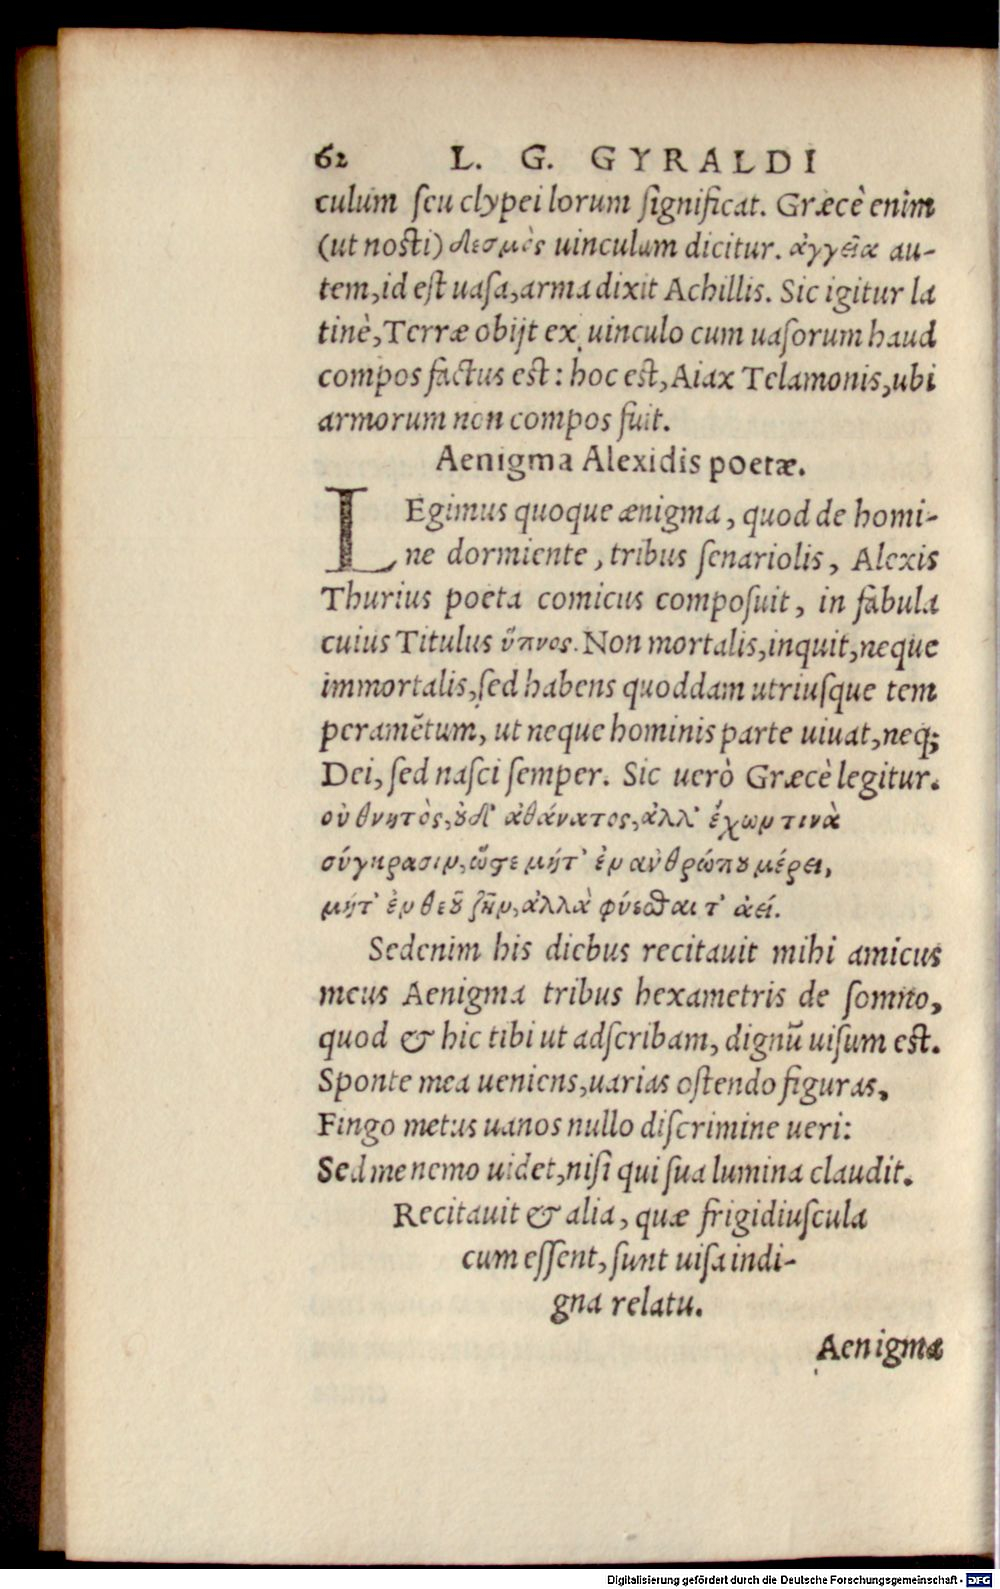 62 L. G. GYRALDI
culum seu clypei lorum significat. Græcè enim
(ut nosti) δεσμὸς uinculum dicitur. ἀγγεῖα au-
tem, id est uasa, arma dixit Achillis. Sic igitur la
tinè, Terræ obijt ex uinculo cum uasorum haud
compos factus est: hoc est, Aiax Telamonis, ubi
armorum non compos fuit.
Aenigma Alexidis poetæ.
LEgimus quoque ænigma, quod de homi-
ne dormiente, tribus senariolis, Alexis
Thurius poeta comicus composuit, in fabula
cuius Titulus ὕπνος. Non mortalis, inquit, neque
immortalis, sed habens quoddam utriusque tem
peramẽtum, ut neque hominis parte uiuat, neq;
Dei, sed nasci semper. Sic uerò Græcè legitur.
οὐ θνητὸς, ȣδ' ἀθάνατος, ἀλλ' ἔχων τινὰ
σύγκρασιν, ὥϛε μήτ' ἐν ἀνθρώπȣ μέρει,
μήτ' ἐν θεȣ͂ ζῆν, ἀλλὰ φύεσθαι τ' ἀεί.
Sedenim his diebus recitauit mihi amicus
meus Aenigma tribus hexametris de somno,
quod & hic tibi ut adscribam, dignũ uisum est.
Sponte mea ueniens, uarias ostendo figuras,
Fingo metus uanos nullo discrimine ueri:
Sed me nemo uidet, nisi qui sua lumina claudit.
Recitauit & alia, quæ frigidiuscula
cum essent, sunt uisa indi-
gna relatu.
Aenigma
Digitalisierung gefördert durch die Deutsche Forschungsgemeinschaft - DFG